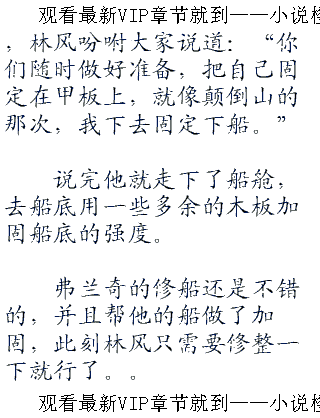 观看最新VIP章节就到——小说
，林风吩咐大家说道：“你
们随时做好准备，把自己固
定在甲板上，就像颠倒山的
那次，我下去固定下船。”
说完他就走下了船舱，
去船底用一些多余的木板加
固船底的强度。
弗兰奇的修船还是不错
的，并且帮他的船做了加
固，此刻林风只需要修整一
下就行了。。
观看最新VIP章节就到——小说